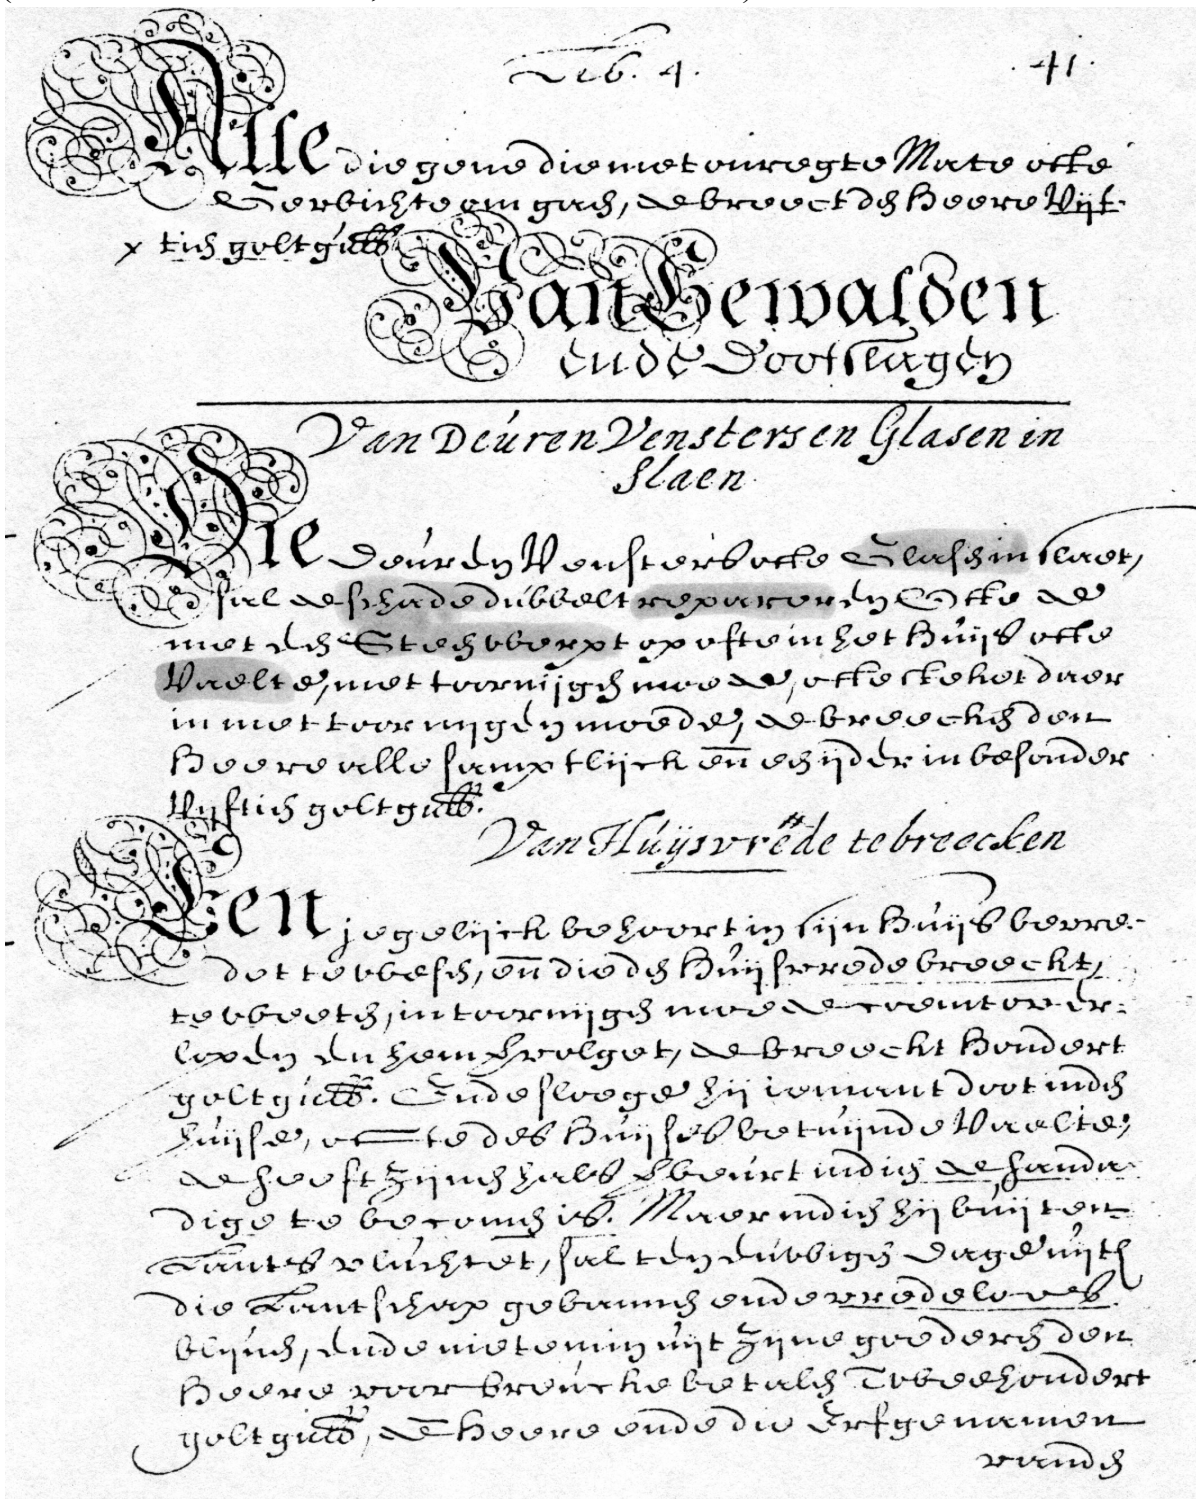 Lib. 4. 41.
Alle die gene die met onregte Mate ofte
Gewichte om gaen, de breeckt den Heere Vijf-
tich goltgull.
Van Gewalden
ende Dootslagen
Van Deuren Vensters en Glasen in
slaen
Die Deuren Vensters ofte Glasen in slaet,
sal de schade dubbelt repareren Ofte de
met den Steen werpt op ofte in het Huijs ofte
Vaelte, met toornijgen moede, ofte steket daer
in met toornigen moede, de breecken den
Heere alle samptlijck en een ijder in besonder
Vijftich goltgull.
Van Huijsvrede te breecken
Een jegelijck behoort in sijn Huijs bevre-
det te wesen, en die den Huijsvrede breeckt,
te weeten, in toornijgen moede coemt over-
lopen en hem volget, de breeckt Hondert
goltgull. Ende sloege hij iemant doot in den
huijse, ofte des Huijses betuijnde Vaelte,
de heeft zijnen hals verbeurt indien de handa-
dige te becomen is. Maer indien hij buijten
Lants vluchtet, sal ten ewigen dage uijt
die Lantschap gebannen ende vredeloes
blijven, ende niet min uijt zijne goederen den
Heere voor breucke betalen Tweehondert
goltgull, de Heere ende die Erfgenamen
van den